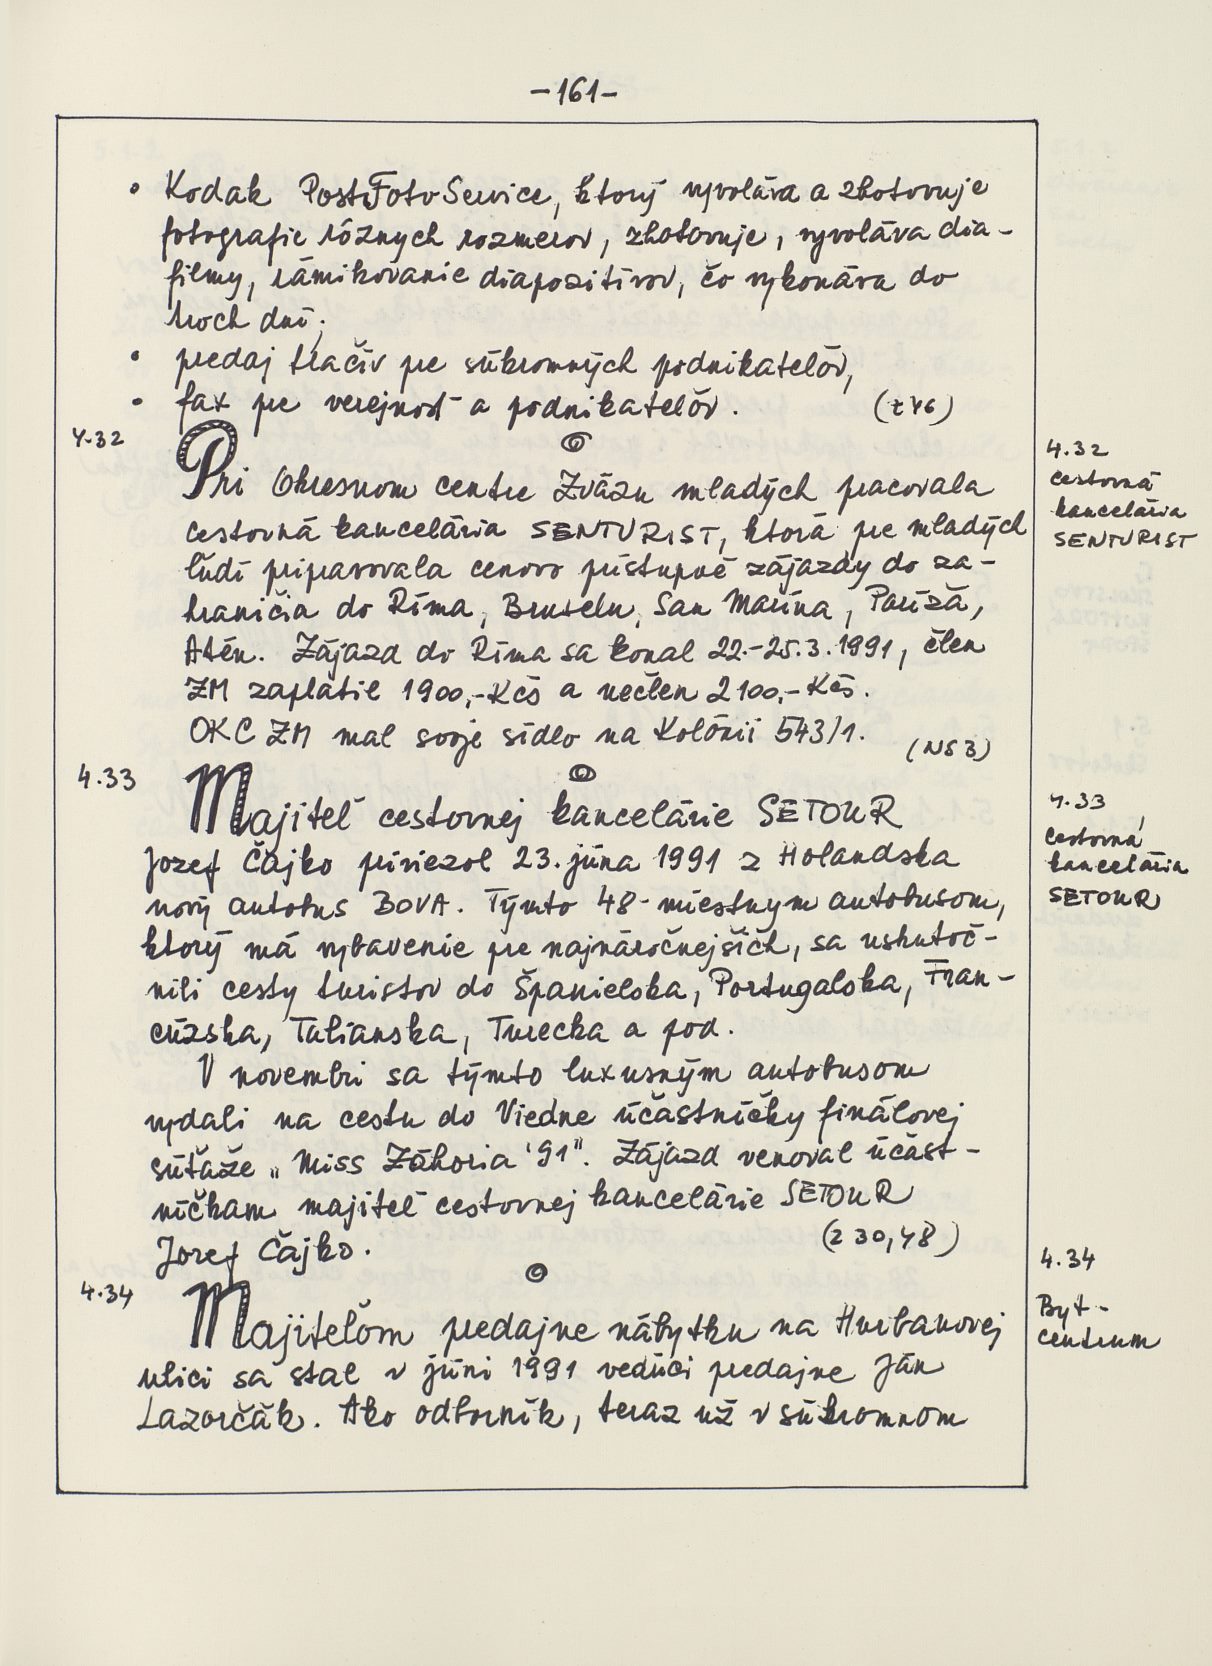 -161-
• Kodak PostFotoService, ktorý vyvoláva a zhotovuje
fotografie rôznych rozmerov, zhotovuje, vyvoláva dia-
filmy, rámikovanie diapozitívov, čo vykonáva do
troch dní;
• predaj tlačív pre súkromných podnikateľov,
• fax pre verejnosť a podnikateľov. (z46)
4.32
Pri Okresnom centre Zväzu mladých pracovala
cestovná kancelária SENTURIST, ktorá pre mladých
ľudí pripravovala cenovo prístupné zájazdy do za-
hraničia do Ríma, Bruselu, San Marína, Paríža,
Atén. Zájazd do Ríma sa konal 22.-25.3.1991, člen
ZM zaplatil 1900,-Kčs a nečlen 2100,-Kčs.
OKC ZM mal svoje sídlo na Kolónii 543/1.
(NS3)
4.32
cestovná
kancelária
SENTURIST
4.33
Majiteľ cestovnej kancelárie SETOUR
Jozef Čajko priviezol 23. júna 1991 z Holandska
nový autobus BOVA. Týmto 48-miestnym autobusom,
ktorý má vybavenie pre najnáročnejších, sa uskutoč-
nili cesty turistov do Španielska, Portugalska, Fran-
cúzska, Talianska, Turecka a pod.
V novembri sa týmto luxusným autobusom
vydali na cestu do Viedne účastníčky finálovej
súťaže „Miss Záhoria '91". Zájazd venoval účast-
níčkam majiteľ cestovnej kancelárie SETOUR
Jozef Čajko. (z 30,48)
4.33
cestovná
kancelária
SETOUR
4.34
Majiteľom predajne nábytku na Hurbanovej
ulici sa stal v júni 1991 vedúci predajne Ján
Lazorčák. Ako odborník, teraz už v súkromnom
4.34
Byt-
centrum